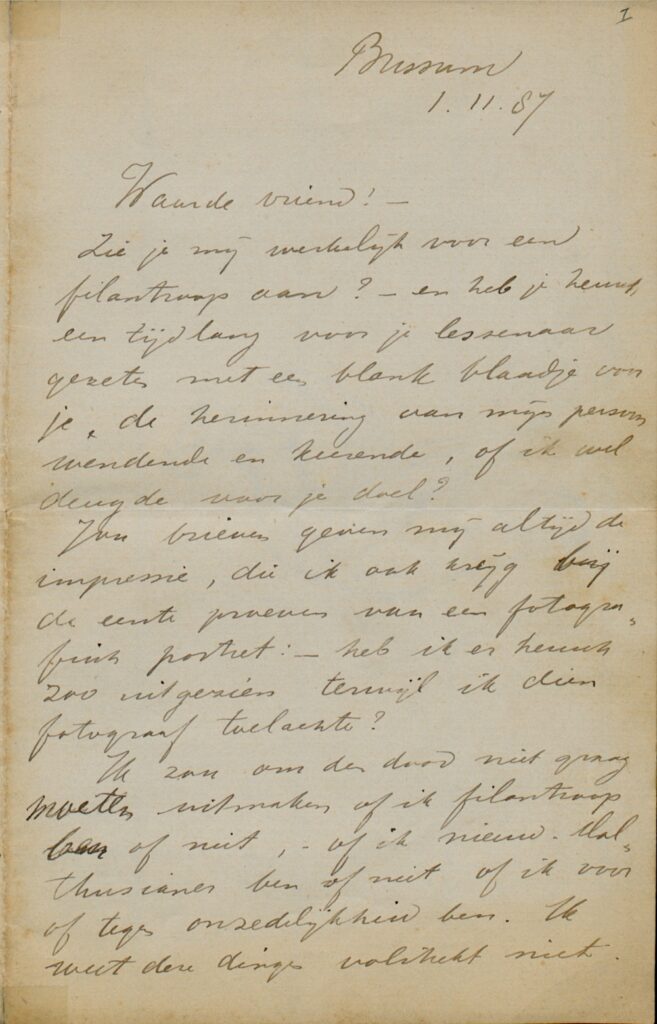 1
Bussum
1.11.87
Waarde vriend! —
Zie je mij werkelijk voor een
filantroop aan? — en heb je heusch
een tijd lang voor je lessenaar
gezeten met een blank blaadje voor
je, de herinnering van mijn persoon
wendende en keerende, of ik wel
deugde voor je doel?
Jou brieven geven mij altijd de
impressie, die ik ook krijg bij
de eerste proeven van een fotogra„
fisch portret: — heb ik er heusch
zoo uitgezien terwijl ik dien
fotograaf toelachte?
Ik zou om den dood niet graag
moeten uitmaken of ik filantroop
ben of niet, - of ik nieuw-Mal„
thusianer ben of niet of ik voor
of tegen onzedelijkheid ben. Ik
weet deze dingen volstrekt niet.